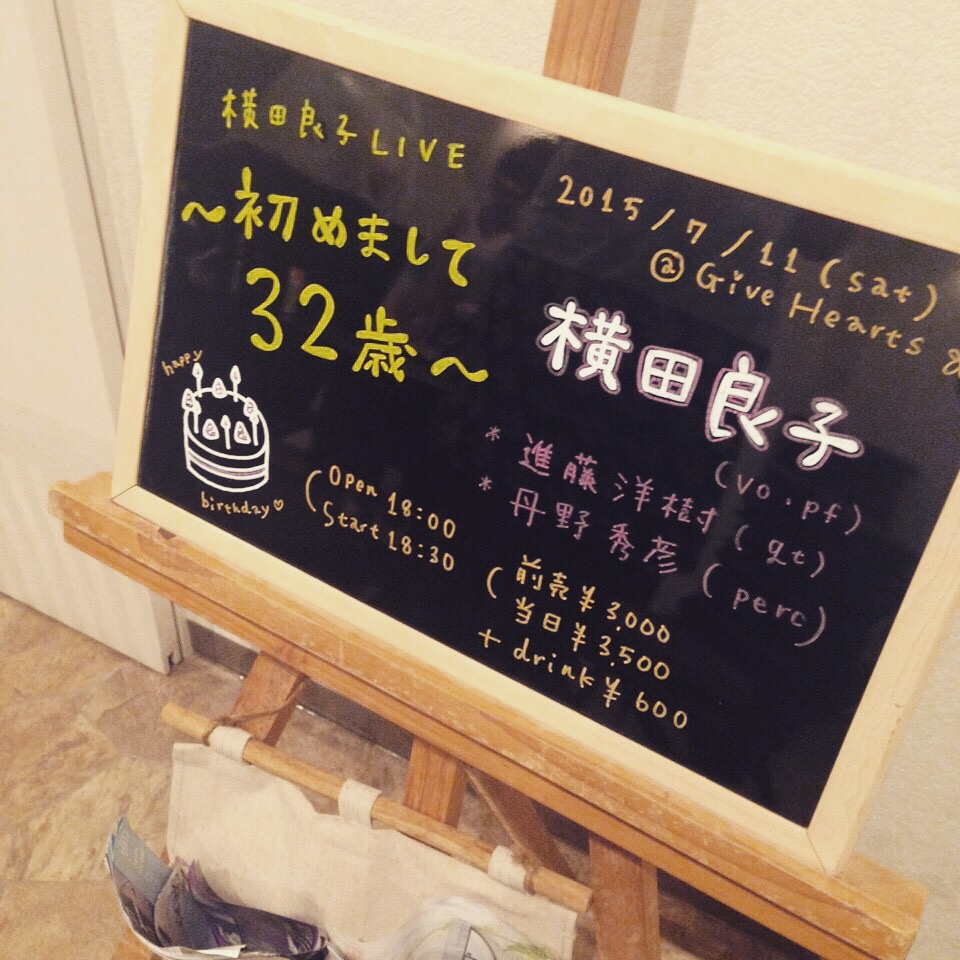 横田良子LIVE
～初めまして
32歳～
happy
birthday♡
(Open 18:00
Start 18:30
2015/7/11(sat)
@Give Hearts
横田良子
(vo.pf)
*進藤洋樹(gt)
*丹野秀彦(perc)
(前売¥3,000
当日¥3,500
+drink¥600